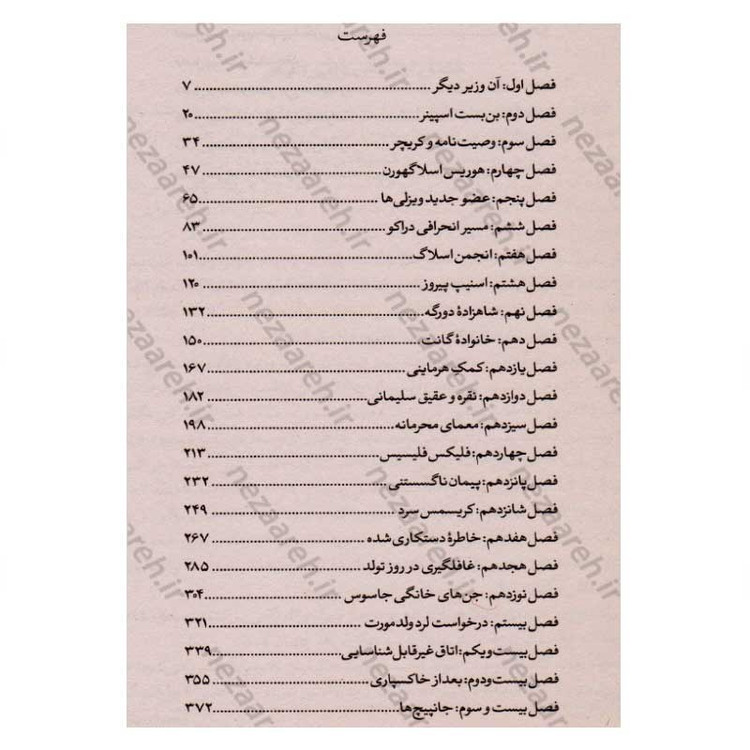 فهرست
فصل اول: آن وزیر دیگر ........................................ ۷
فصل دوم: بن‌بست اسپینر ........................................ ۲۰
فصل سوم: وصیت‌نامه و کریچر ........................................ ۳۴
فصل چهارم: هوریس اسلاگهورن ........................................ ۴۷
فصل پنجم: عضو جدید ویزلی‌ها ........................................ ۶۵
فصل ششم: مسیر انحرافی دراکو ........................................ ۸۳
فصل هفتم: انجمن اسلاگ ........................................ ۱۰۱
فصل هشتم: اسنیپ پیروز ........................................ ۱۲۰
فصل نهم: شاهزادهٔ دورگه ........................................ ۱۳۲
فصل دهم: خانوادهٔ گانت ........................................ ۱۵۰
فصل یازدهم: کمک هرماینی ........................................ ۱۶۷
فصل دوازدهم: نقره و عقیق سلیمانی ........................................ ۱۸۲
فصل سیزدهم: معمای محرمانه ........................................ ۱۹۸
فصل چهاردهم: فلیکس فلیسیس ........................................ ۲۱۳
فصل پانزدهم: پیمان ناگسستنی ........................................ ۲۳۲
فصل شانزدهم: کریسمس سرد ........................................ ۲۴۹
فصل هفدهم: خاطرهٔ دستکاری شده ........................................ ۲۶۷
فصل هجدهم: غافلگیری در روز تولد ........................................ ۲۸۵
فصل نوزدهم: جن‌های خانگی جاسوس ........................................ ۳۰۴
فصل بیستم: درخواست لرد ولدمورت ........................................ ۳۲۱
فصل بیست و یکم: اتاق غیرقابل شناسایی ........................................ ۳۳۹
فصل بیست و دوم: بعد از خاکسپاری ........................................ ۳۵۵
فصل بیست و سوم: جانپیچ‌ها ........................................ ۳۷۲
nezaareh.ir